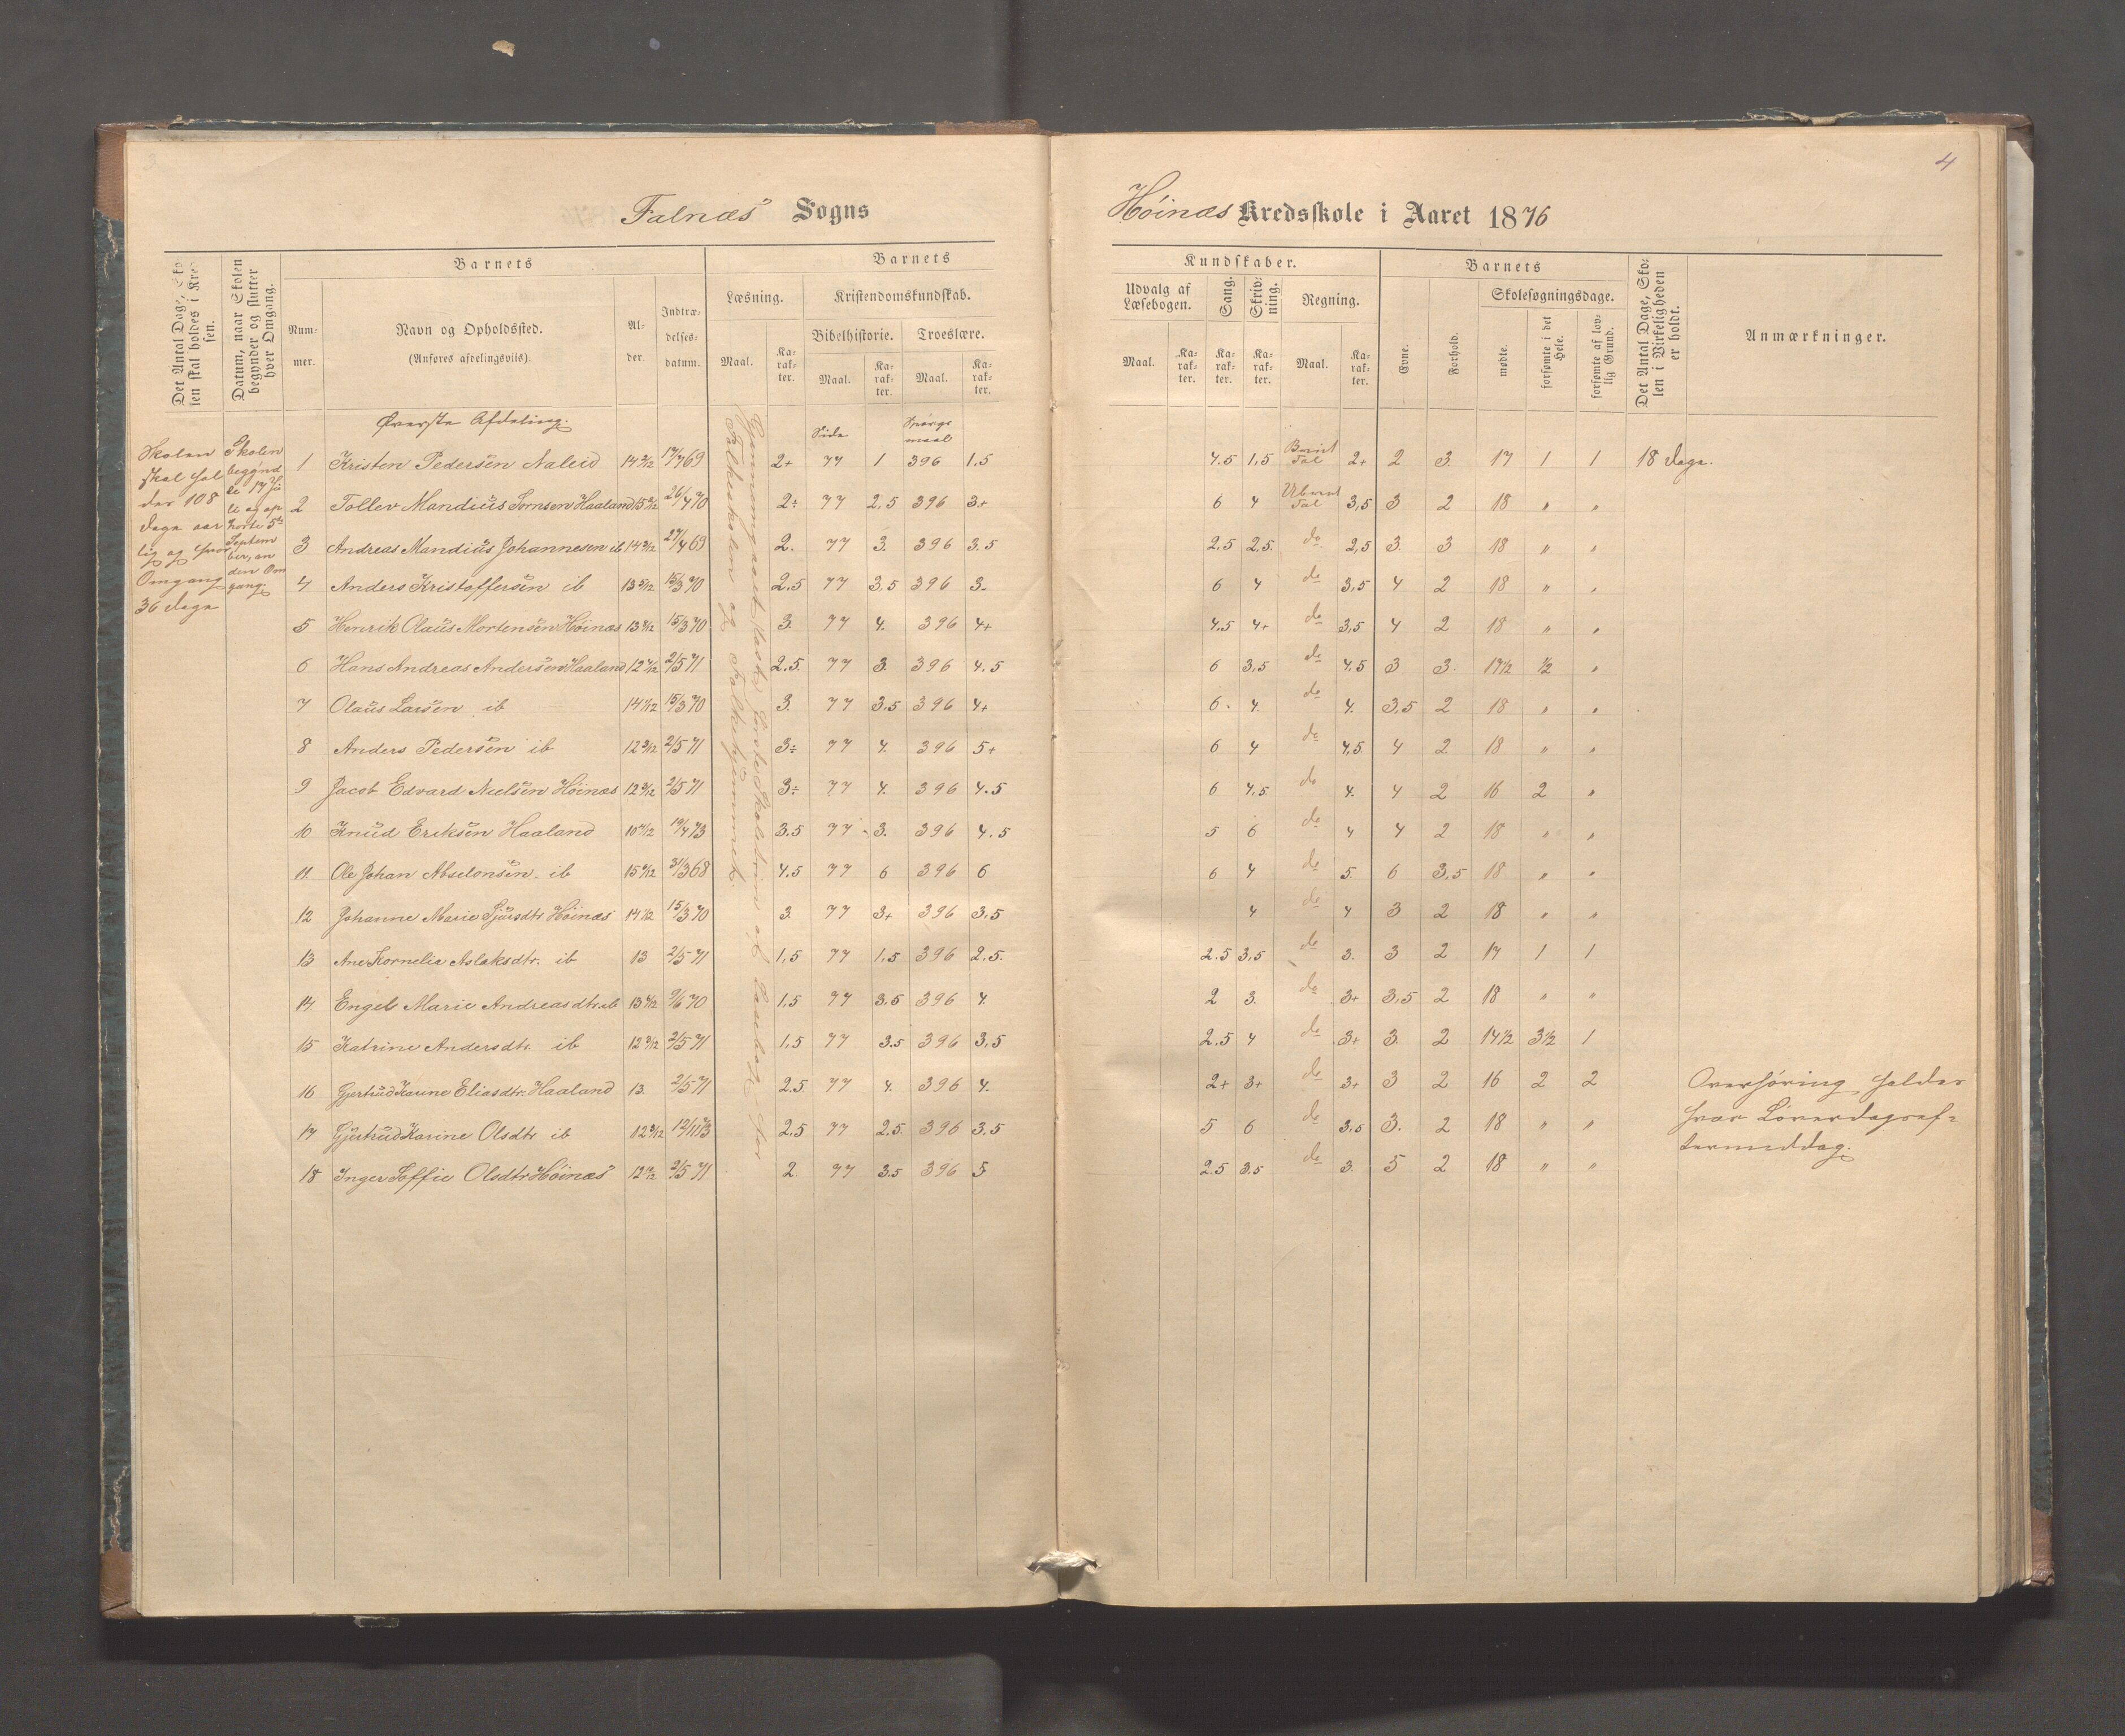 4
Falnæs Sogns
Höinæs Kredsskole i Aaret 1876
Det Antal Dage, Skolen skal holdes i Kredsen.
Datum, naar Skolen begynder og slutter hver Omgang.
Barnets
Nummer.
Navn og Opholdssted.
(Anføres afdelingsviis).
Alder.
Indtrædelsesdatum.
Barnets
Læsning.
Maal.
Karakter.
Kristendomskundskab.
Bibelhistorie.
Maal.
Karakter.
Troeslære.
Maal.
Karakter.
Kundskaber.
Udvalg af Læsebogen.
Maal.
Karakter.
Sang.
Karakter.
Skrivning.
Karakter.
Regning.
Maal.
Karakter.
Barnets
Evne.
Forhold.
Skolesøgningsdage.
mødte.
forsømte i det Hele.
forsømte af lovlig Grund.
Det Antal Dage, Skolen i Virkeligheden er holdt.
Anmærkninger.
Øverste Afdeling.
Side
Spörgsmaal
Skolen
skal hol
des 108
Dage aar
lig og hver
Omgang
36 Dage
Skolen
begynd
te 17 Ju
li og op
hørte 5te
Septem
ber, an
den Om
gang.
1 Kristen Pedersen Naleid 14 2/12 17/7 69 2+ 77 1 396 1.5 4.5 1,5 Brudt Tal 2+ 2 3. 17 1 1 18 Dage.
2 Tollev Mandius Sørnsen Haaland 26/4 70 2÷ 77 2,5 396 3+ 6 4 Ubenævnt Tal 3,5 3 2 18 " "
3 Andreas Mandius Johannesen ib 27/4 69 2. 77 3. 396 3.5 2,5 2,5. do 2,5 3. 3 18 " "
4 Anders Kristoffersen ib 13 5/12 15/3 70 2.5 77 3,5 396 3- 6 4 do 3,5 4 2 18 " "
5 Henrik Olaus Mortensen Höinæs 15/3 70 3. 77 4. 396 4+ 4.5 4+ do 3,5 4 2 18 " "
6 Hans Andreas Andersen Haaland 2/5 71 2.5. 77 3. 396 4.5 6 3,5 do 4.5 3 3. 17 1/2 1/2 "
7 Olaus Larsen ib 14 1/12 15/3 70 3. 77 3.5 396 4+ 6. 4. do 4. 3.5 2 18 " "
8 Anders Pedersen ib 2/5 71 3÷ 77 4. 396 5+ 6 4 do 4,5 4 2 18 " "
9 Jacob Edvard Nielsen Höinæs 2/5 71 3÷ 77 4. 396 4.5 6 4,5. do 4. 4 2 16 2 "
10 Knud Eriksen Haaland 3.5 77 3. 396 4.5 5 6 do 4 4 2 18 " "
11. Ole Johan Abselonsen. ib 31/3 68 4.5 77 6 396 6 6 4 do 5. 6 3,5 18 " "
12 Johanne Marie Sjursdtr Höinæs 15/3 70 3. 77 3+ 396 3.5 4 do 4 3 2 18 " "
13 Ane Kornelia Aslaksdtr. ib 13 2/5 71 1,5 77 1,5 396 2,5. 2.5 3,5 do 3. 3 2 17 1 1
14. Engel Marie Andreasdtr ib 9/6 70 1,5 77 3.5 396 4. 2 3. do 3+ 3,5 2 18 " "
15 Katrine Andersdtr. ib 2/5 71 1,5 77 3.5 396 3,5 2.5 4 do 3+ 3. 2 14 1/2 3 1/2 1
16 Gjertrud Karine Eliasdtr. Haaland 13. 2/5 71 2.5. 77 4. 396 4. 2+ 3+ do 3+ 3 2 16 2 2
17 Gjertrud Karine Olsdtr ib 2.5 77 2.5. 396 3,5 5 6 do 3.5 3. 2 18 " "
18 Inger Soffie Olsdtr Höinæs 2/5 71 2. 77 3.5 396 5 2.5 3.5 do 3. 5 2 18 " "
Gjennemgaaet, første Skoletrin af Læsebog for
Folkeskolen og Folkehjemmet.
Overhøring holdes
hver Løverdagsef-
termiddag.